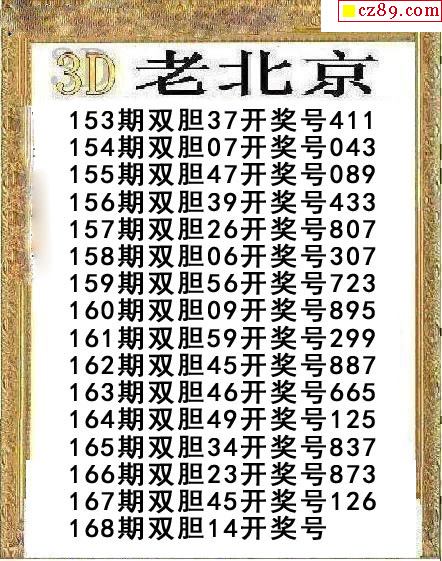 cz89.com
3D 老北京
153期双胆37开奖号411
154期双胆07开奖号043
155期双胆47开奖号089
156期双胆39开奖号433
157期双胆26开奖号807
158期双胆06开奖号307
159期双胆56开奖号723
160期双胆09开奖号895
161期双胆59开奖号299
162期双胆45开奖号887
163期双胆46开奖号665
164期双胆49开奖号125
165期双胆34开奖号837
166期双胆23开奖号873
167期双胆45开奖号126
168期双胆14开奖号